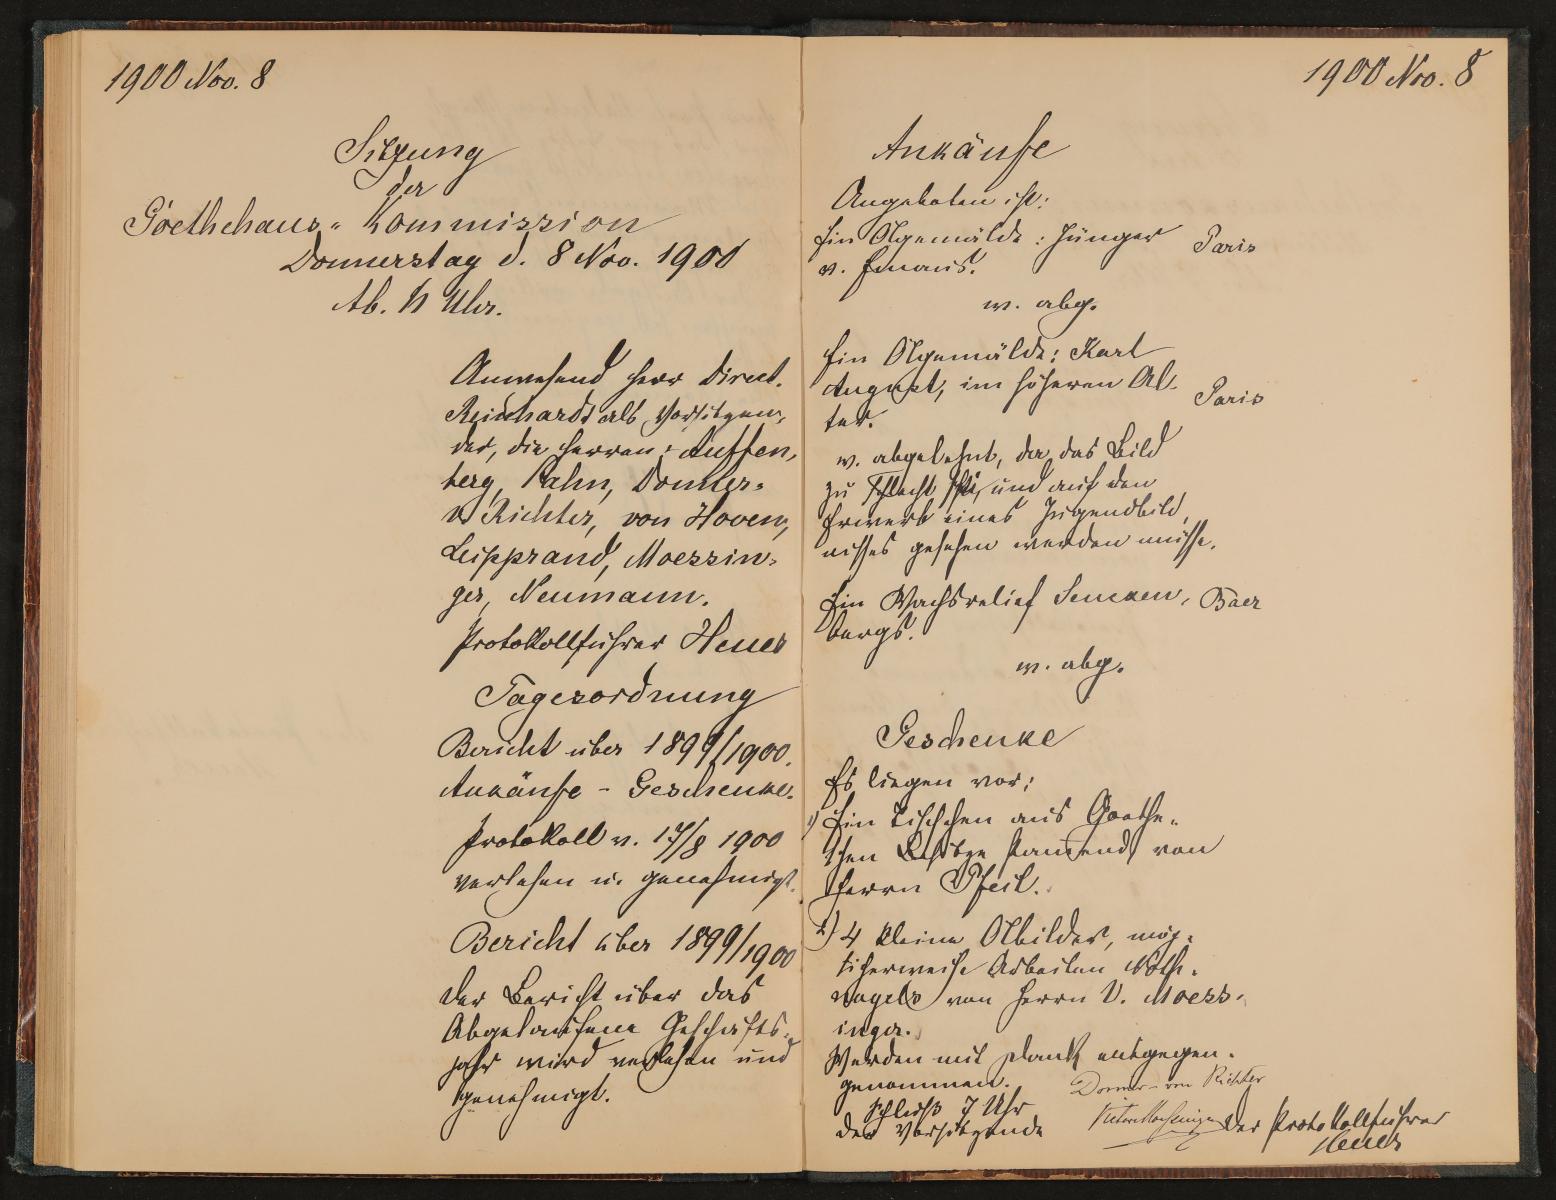 1900 Nov. 8
Sitzung
der
Goethehaus-Kommission
Donnerstag d. 8 Nov. 1900
Ab. 6 Uhr.
Anwesend Herr Direct.
Reinhardt als Vorsitzen-
der, die Herren: Auffen-
berg, Cahn, Donner-
v Richter, von Hoven,
Leipprand, Moessin-
ger, Neumann.
Protokollführer Heuer
Tagesordnung
Bericht über 1899/1900.
Ankäufe - Geschenke.
Protokoll v. 17/8 1900
verlesen u. genehmigt.
Bericht über 1899/1900
Der Bericht über das
Abgelaufene Geschäfts-
jahr wird verlesen und
genehmigt.
1900 Nov. 8
Ankäufe
Angeboten ist:
Ein Ölgemälde: Jünger Paris
v. Emaus.
w. abg.
Ein Ölgemälde: Karl
August, im höheren Al- Paris
ter.
w. abgelehnt, da das Bild
zu schlecht sei, und auf den
Erwerb eines Jugendbild-
nisses gesehen werden müsse.
Ein Wachsrelief Sencken- Baer
bergs.
w. abg.
Geschenke
Es liegen vor:
1) Ein Tischchen aus Goethe-
schen Besitze stammend von
Herrn Pfeil.
2) 4 kleine Ölbilder, mög-
licherweise Arbeiten Noth-
nagels von Herrn V. Moess-
inger.
Werden mit Dank entgegen-
genommen.
Donner-von Richter
Schluß 7 Uhr
Der Vorsitzende
Victor Moessinger
Der Protokollführer
Heuer